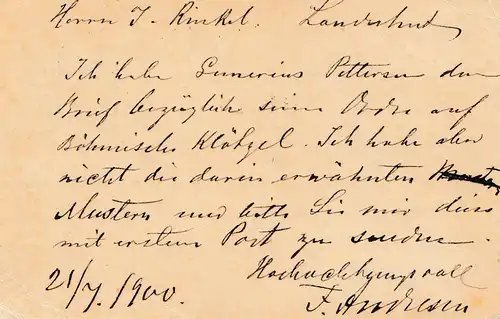 Herrn J. Rinkel. Landeshut
Ich habe Gunerius Pettersen den
Brief bezüglich seine Ordre auf
Böhmische Klötzel. Ich habe aber
nicht die darin erwähnten
Mustern und bitte Sie mir dies
mit erstem Post zu senden.
Hochachtungsvoll
21/7. 1900.
F. Andresen